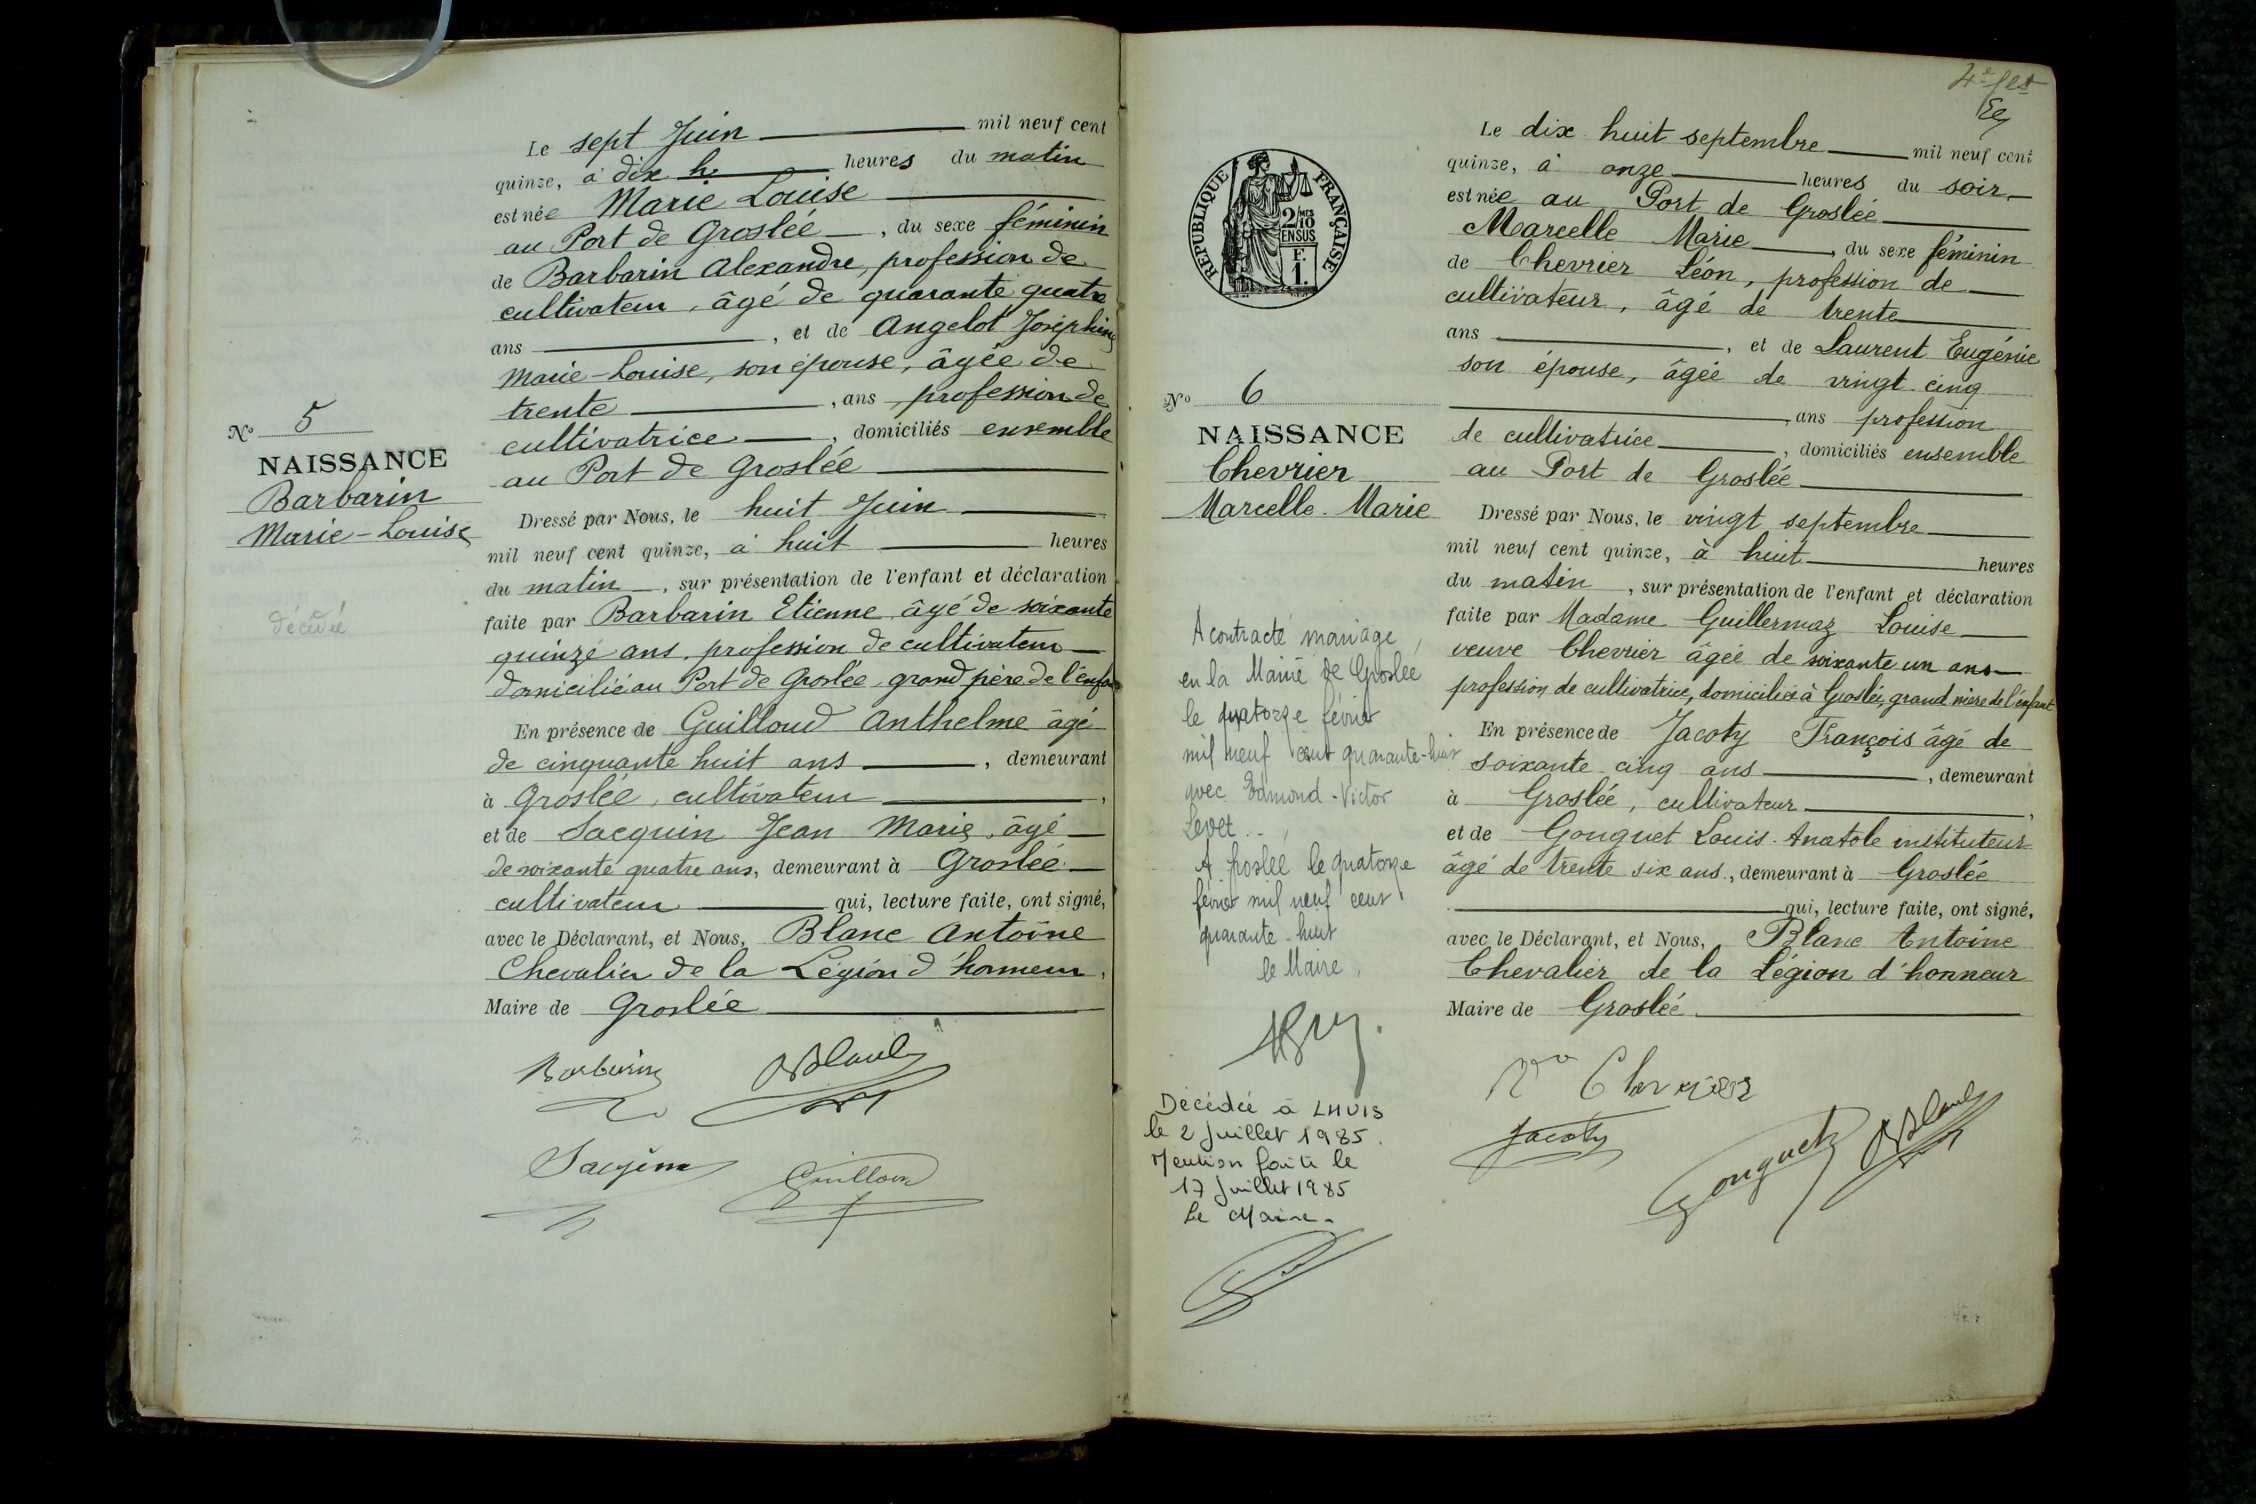 Le sept Juin mil neuf cent
quinze, à dix h. heures du matin
est née Marie Louise
au Port de Groslée, du sexe féminin
de Barbarin Alexandre, profession de
cultivateur, âgé de quarante quatre
ans, et de Angelot Joséphine
Marie-Louise, son épouse, âgée de
trente, ans profession de
cultivatrice, domiciliés ensemble
au Port de Groslée
N° 5
NAISSANCE
Barbarin
Marie-Louise
décédée
Dressé par Nous, le huit Juin
mil neuf cent quinze, à huit heures
du matin, sur présentation de l'enfant et déclaration
faite par Barbarin Etienne âgé de soixante
quinze ans, profession de cultivateur
domicilié au Port de Groslée, grand père de l'enfant
En présence de Guilloud Anthelme âgé
de cinquante huit ans, demeurant
à Groslée, cultivateur,
et de Sacquin Jean Marie, âgé
de soixante quatre ans, demeurant à Groslée
cultivateur qui, lecture faite, ont signé,
avec le Déclarant, et Nous, Blanc Antoine
Chevalier de la Légion d'honneur,
Maire de Groslée
Barbarin ABlanc
Sacquin Guilloud
4e flet
RÉPUBLIQUE FRANÇAISE
2/10 MES
EN SUS
F.
1.
Le dix huit septembre mil neuf cent
quinze, à onze heures du soir,
est née au Port de Groslée
Marcelle Marie, du sexe féminin
de Chevrier Léon, profession de
cultivateur, âgé de trente
ans, et de Laurent Eugénie
son épouse, âgée de vingt cinq
, ans profession
de cultivatrice, domiciliés ensemble
au Port de Groslée
N° 6
NAISSANCE
Chevrier
Marcelle-Marie
Dressé par Nous, le vingt septembre
mil neuf cent quinze, à huit heures
du matin, sur présentation de l'enfant et déclaration
faite par Madame Guillermaz Louise
veuve Chevrier âgée de soixante un ans
profession de cultivatrice, domiciliée à Groslée, grand mère de l'enfant
En présence de Jacoty François âgé de
soixante cinq ans, demeurant
à Groslée, cultivateur,
et de Gonguet Louis-Anatole instituteur
âgé de trente six ans, demeurant à Groslée
qui, lecture faite, ont signé,
avec le Déclarant, et Nous, Blanc Antoine
Chevalier de la Légion d'honneur
Maire de Groslée
Vve Chevrier
Jacoty
Gonguet ABlanc
A contracté mariage
en la Mairie de Groslée
le quatorze février
mil neuf cent quarante-huit
avec Edmond-Victor
Levet.
A Groslée le quatorze
février mil neuf cent
quarante-huit
le Maire,
Décédée à LHUIS
le 2 juillet 1985.
Mention faite le
17 juillet 1985
Le Maire.